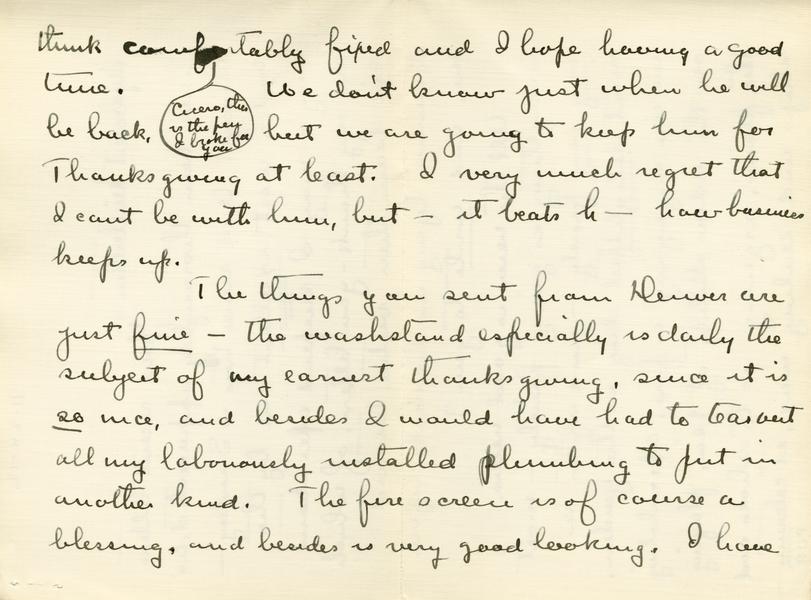 think comfortably fixed and I hope having a good
time. We don't know just when he will
be back, but we are going to keep him for
Cicero, this
is the pen
I broke for
you
Thanksgiving at least. I very much regret that
I cant be with him, but — it beats h— how business
keeps up.
The things you sent from Denver are
just fine — the washstand especially is daily the
subject of my earnest thanksgiving, since it is
so nice, and besides I would have had to tear out
all my laboriously installed plumbing to put in
another kind. The fire screen is of course a
blessing, and besides is very good looking. I have